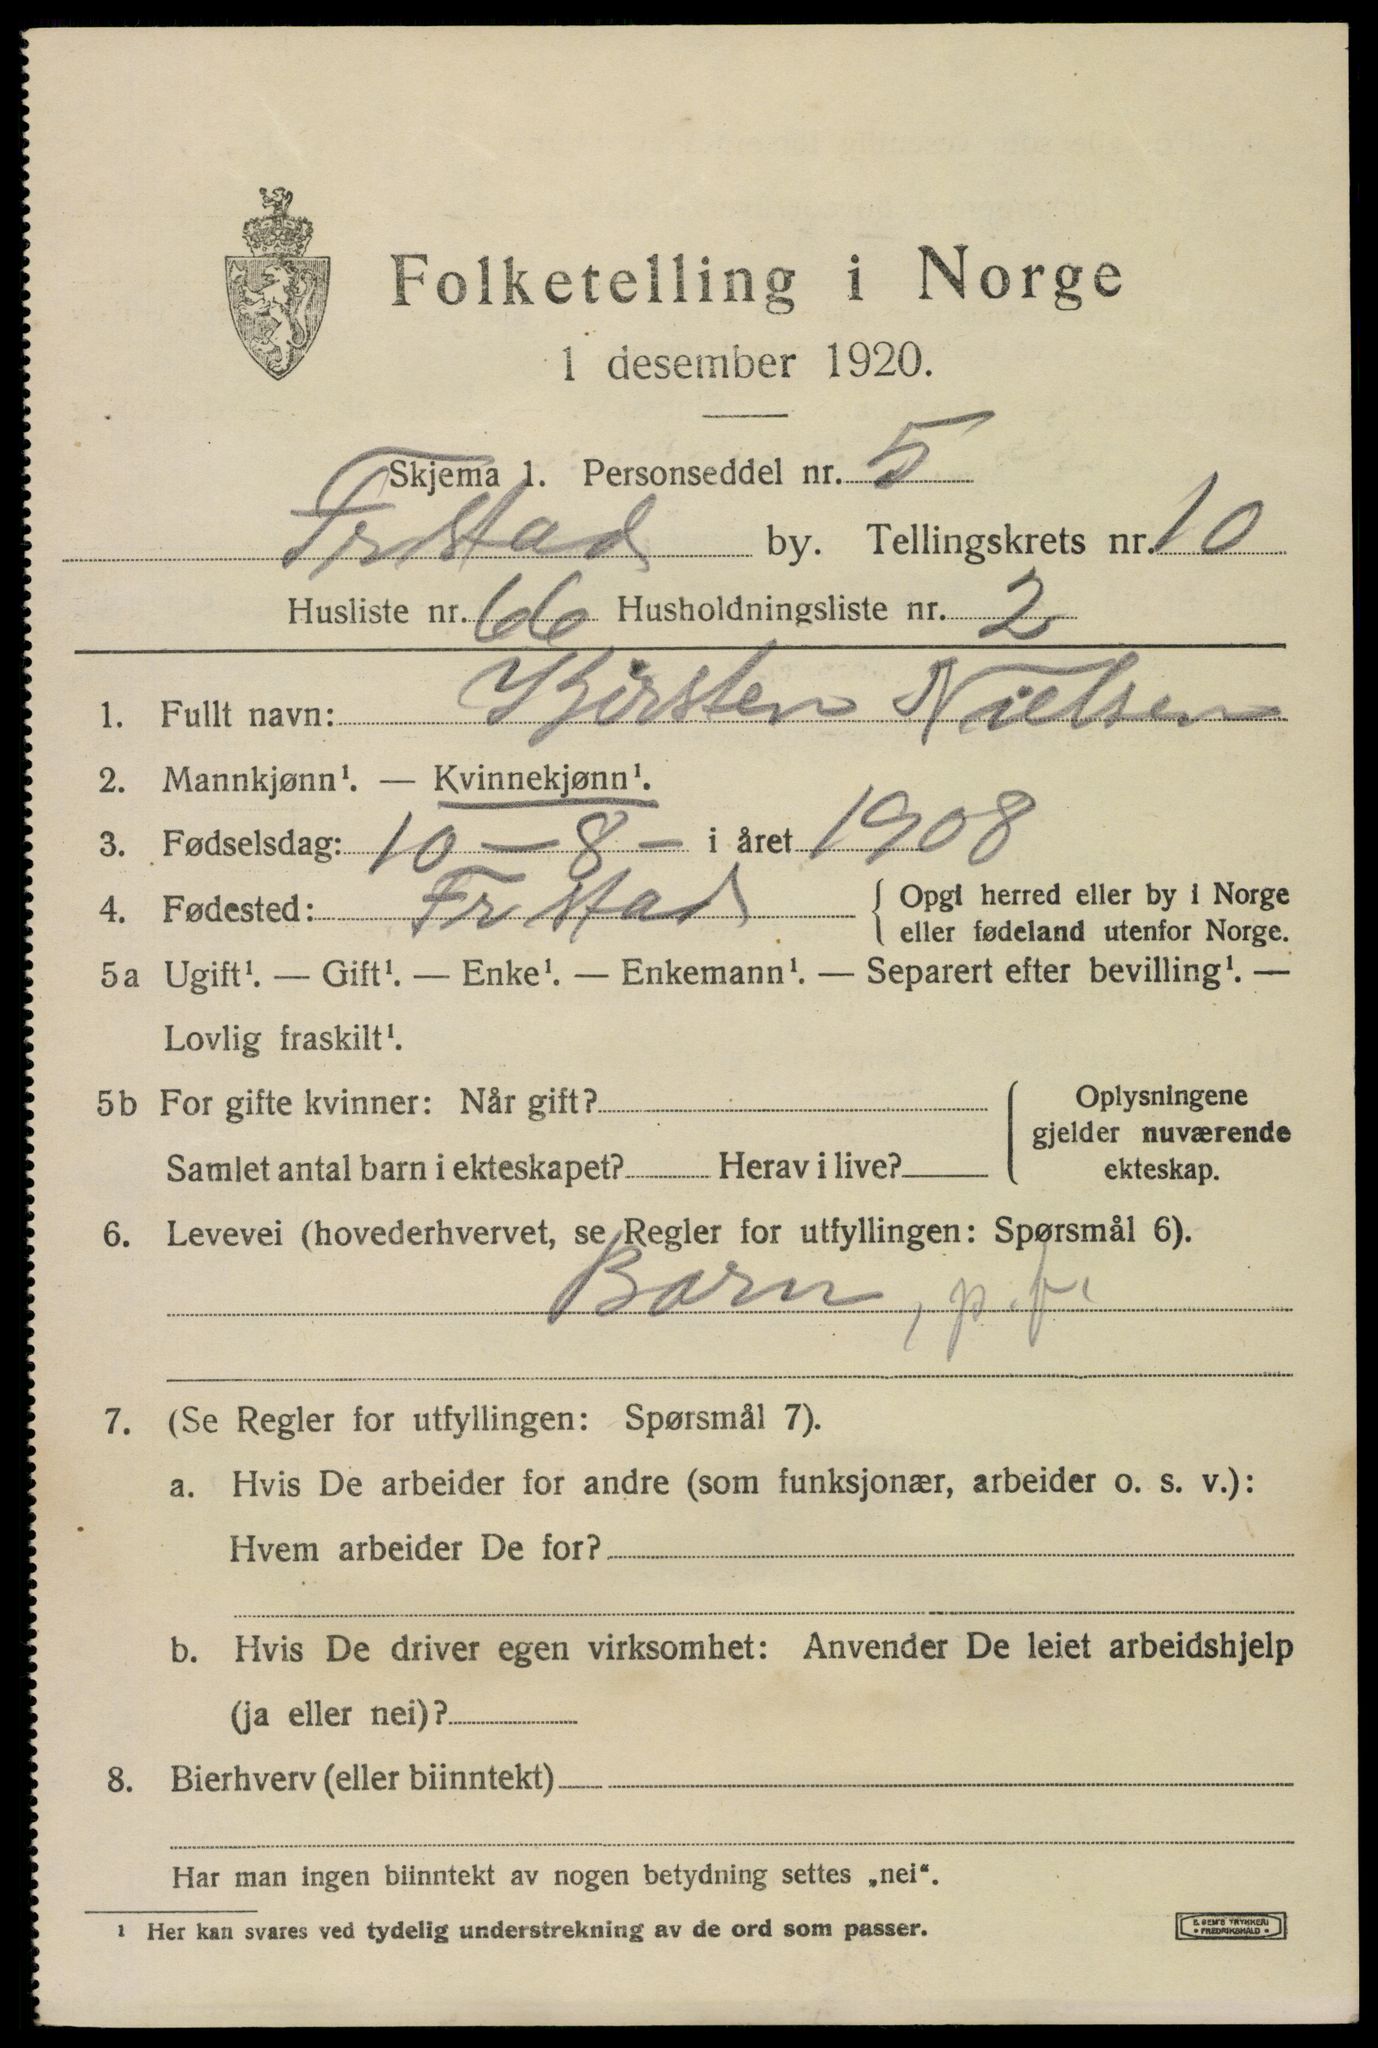 Folketelling i Norge
1 desember 1920.
Skjema 1. Personseddel nr. 5
Fr.stad by. Tellingskrets nr. 10
Husliste nr. 66 Husholdningsliste nr. 2
1. Fullt navn: Kirsten Nielsen
2. Mannkjønn¹. — Kvinnekjønn¹.
3. Fødselsdag: 10 – 8 – i året 1908
4. Fødested: Fr.stad { Opgi herred eller by i Norge
eller fødeland utenfor Norge.
5a Ugift¹. — Gift¹. — Enke¹. — Enkemann¹. — Separert efter bevilling¹. —
Lovlig fraskilt¹.
5b For gifte kvinner: Når gift? Oplysningene
gjelder nuværende
Samlet antal barn i ekteskapet? Herav i live? ekteskap.
6. Levevei (hovederhvervet, se Regler for utfyllingen: Spørsmål 6).
Barn, p.f.
7. (Se Regler for utfyllingen: Spørsmål 7).
a. Hvis De arbeider for andre (som funksjonær, arbeider o. s. v.):
Hvem arbeider De for?
b. Hvis De driver egen virksomhet: Anvender De leiet arbeidshjelp
(ja eller nei)?
8. Bierhverv (eller biinntekt)
Har man ingen biinntekt av nogen betydning settes „nei“.
¹ Her kan svares ved tydelig understrekning av de ord som passer.
E. SEM'S TRYKKERI
• FREDRIKSHALD •